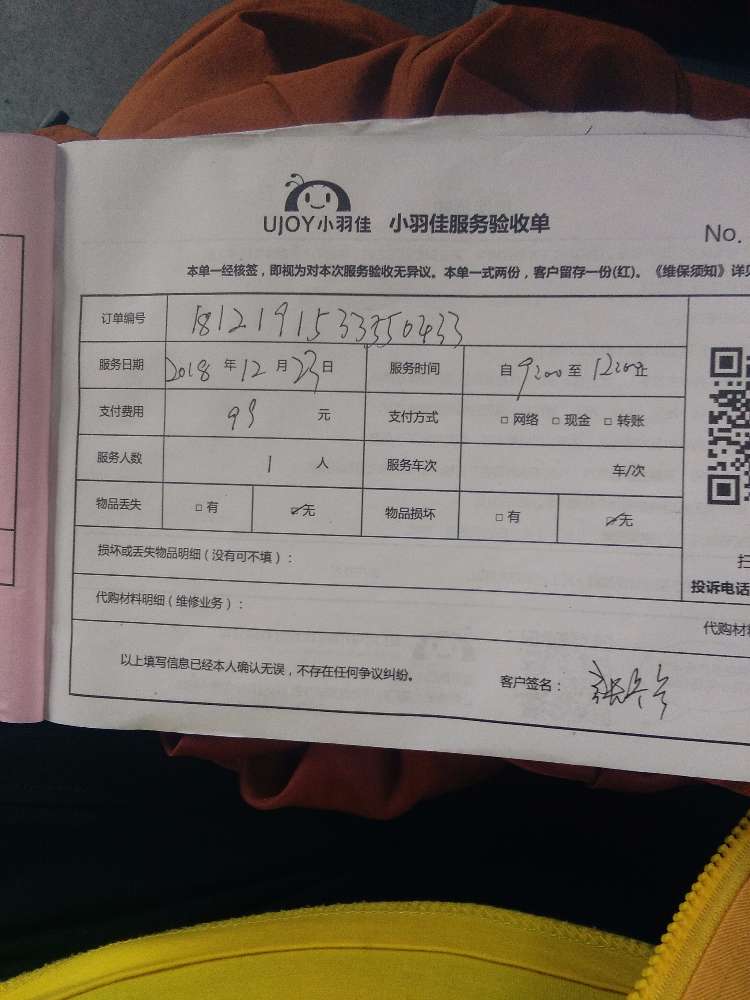 UJOY小羽佳 小羽佳服务验收单
No.
本单一经核签，即视为对本次服务验收无异议。本单一式两份，客户留存一份(红)。《维保须知》详见
订单编号 18121915333350433
服务日期 2018 年 12 月 23 日 服务时间 自 9:00 至 12:00 止
支付费用 99 元 支付方式 □ 网络 □ 现金 □ 转账
服务人数 1 人 服务车次 车/次
物品丢失 □ 有 ☑无 物品损坏 □ 有 ☑无
损坏或丢失物品明细（没有可不填）：
扫
投诉电话
代购材料明细（维修业务）：
代购材
以上填写信息已经本人确认无误，不存在任何争议纠纷。
客户签名：